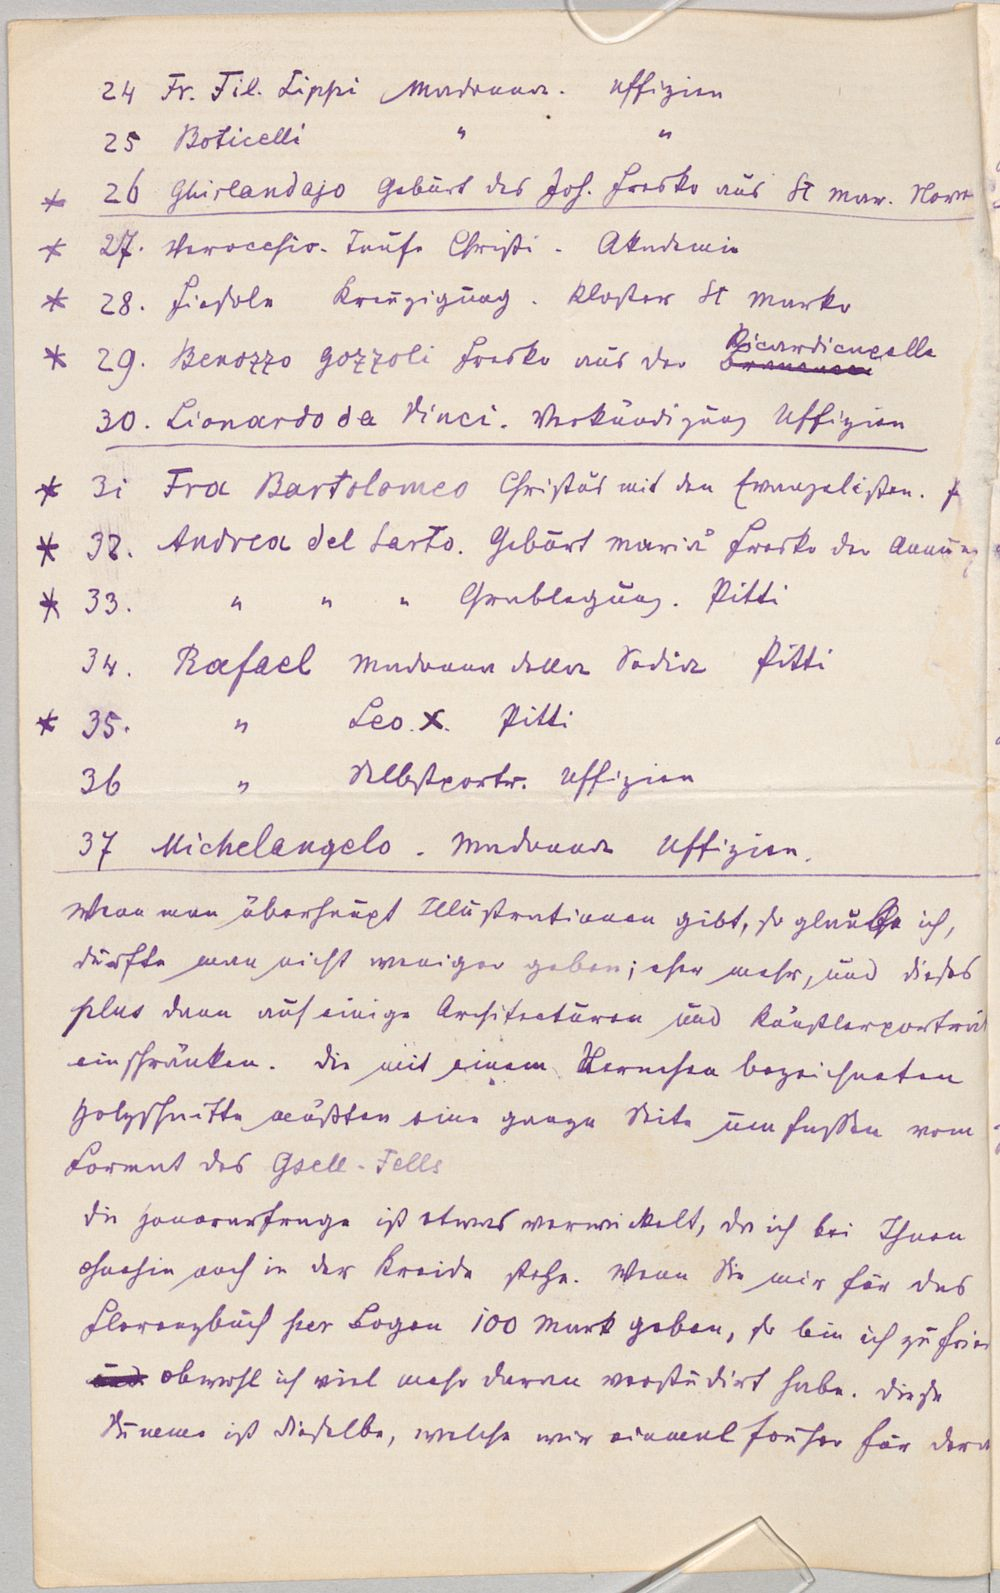 24 Fr. Fil. Lippi Madonna. Uffizien
25 Boticelli " "
* 26 Ghirlandajo Geburt des Joh. Fresko aus St Mar. Nove
* 27. Verocchio. Taufe Christi. Akademie
* 28. Fiesole Kreuzigung. Kloster St Marko
* 29. Benozzo Gozzoli Fresko aus der Ricardicapelle
30. Lionardo da Vinci. Verkündigung Uffizien
* 31 Fra Bartolomeo Christus mit den Evangelisten. P
* 32. Andrea del Sarto. Geburt Mariä Fresko der Annunz
* 33. " " " Grablegung. Pitti
34. Rafael Madonna della Sedia Pitti
* 35. " Leo X. Pitti
36 " Selbstportr. Uffizien
37 Michelangelo. Madonna Uffizien.
Wenn man überhaupt Illustrationen gibt, so glaube ich,
dürfte man nicht weniger geben; eher mehr, und dieses
plus dann auf einige Architecturen und Künstlerporträt
einschränken. Die mit einem Sternchen bezeichneten
Holzschnitte müßten eine ganze Seite umfassen vom
Format des Gsell-Fells
Die Honorarfrage ist etwas verwickelt, da ich bei Ihnen
ohnehin noch in der Kreide stehe. Wenn Sie mir für das
Florenzbuch per Bogen 100 Mark geben, so bin ich zufrie
und obwohl ich viel mehr daran verstudirt habe. Diese
Summe ist dieselbe, welche wir einmal früher für dera